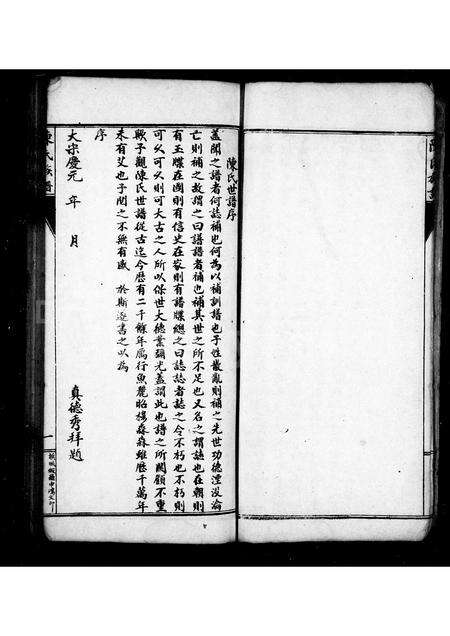 陳氏世譜序
蓋聞之譜者何誌補也何為以補訓譜也子性散亂則補之先世功德湮沒淪
亡則補之故謂之曰譜譜者補也補其世之所不足也又名之謂誌也在朝則
有玉牒在國則有信史在家則有譜牒總之曰誌誌者誌之令不朽也不朽則
可久可久則可大古之人所以保世大德業彌光蓋謂此也譜之所關顧不重
歟予觀陳氏世譜從古迄今歷有二千餘年鴈行魚麗昭穆森森雖歷千萬年
未有艾也予閱之不無有感 於斯遂書之以為
序
大宋慶元 年 月
真德秀拜題
陳氏族譜
一